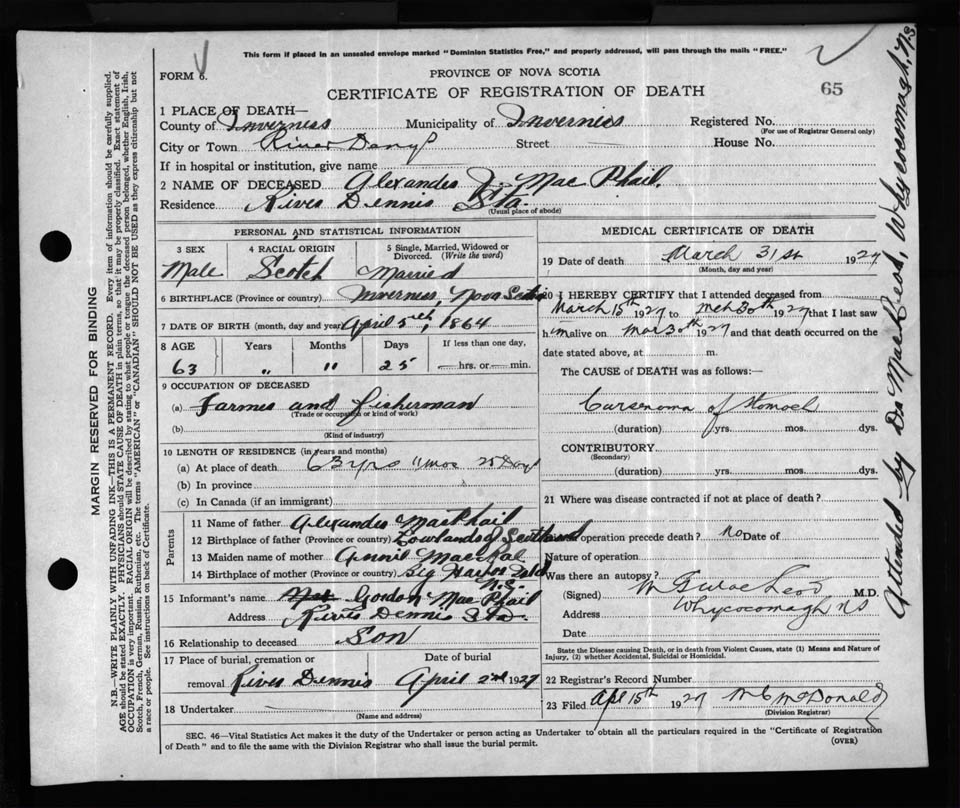 This form if placed in an unsealed envelope marked "Dominion Statistics Free," and properly addressed, will pass through the mails "FREE."
FORM 6.
PROVINCE OF NOVA SCOTIA
CERTIFICATE OF REGISTRATION OF DEATH
65
1 PLACE OF DEATH—
County of Inverness Municipality of Inverness Registered No.
(For use of Registrar General only)
City or Town River Street House No.
If in hospital or institution, give name
2 NAME OF DECEASED Alexander J. Mac Phail.
Residence River Dennis Sta.
(Usual place of abode)
PERSONAL AND STATISTICAL INFORMATION
3 SEX 4 RACIAL ORIGIN 5 Single, Married, Widowed or Divorced. (Write the word)
Male Scotch Married
6 BIRTHPLACE (Province or country) Inverness, Nova Scotia
7 DATE OF BIRTH (month, day and year) April 5th, 1864
8 AGE Years Months Days If less than one day,
63 " " 25 hrs. or min.
9 OCCUPATION OF DECEASED
(a) Farmer and fisherman
(Trade or occupation or kind of work)
(b)
(Kind of industry)
10 LENGTH OF RESIDENCE (in years and months)
(a) At place of death 63 yrs 11 mos 25 Days
(b) In province
(c) In Canada (if an immigrant)
Parents
11 Name of father Alexander MacPhail
12 Birthplace of father (Province or country) Lowlands of Scotland
13 Maiden name of mother Annie Mac
14 Birthplace of mother (Province or country) Big Harbor N.S.
15 Informant's name Gordon Mac Phail
Address River Dennis Sta.
16 Relationship to deceased Son
17 Place of burial, cremation or removal River Dennis Date of burial April 2nd 1927
18 Undertaker
(Name and address)
MEDICAL CERTIFICATE OF DEATH
19 Date of death March 31st 1927
(Month, day and year)
20 I HEREBY CERTIFY that I attended deceased from
March 15th 1927 to Mch 30th 1927 that I last saw
him alive on Mar 30th 1927 and that death occurred on the
date stated above, at m.
The CAUSE of DEATH was as follows:—
Carsenoma of Stomoch
(duration) yrs. mos. dys.
CONTRIBUTORY
(Secondary)
(duration) yrs. mos. dys.
21 Where was disease contracted if not at place of death?
operation precede death? no Date of
Nature of operation
Was there an autopsy?
(Signed) MacLeod M.D.
Address Whycocomagh N S
Date
State the Disease causing Death, or in death from Violent Causes, state (1) Means and Nature of Injury, (2) whether Accidental, Suicidal or Homicidal.
22 Registrar's Record Number
23 Filed Apl 15th 1927 M C McDonald
(Division Registrar)
SEC. 46—Vital Statistics Act makes it the duty of the Undertaker or person acting as Undertaker to obtain all the particulars required in the "Certificate of Registration
of Death" and to file the same with the Division Registrar who shall issue the burial permit.
(OVER)
MARGIN RESERVED FOR BINDING
N.B.—WRITE PLAINLY WITH UNFADING INK—THIS IS A PERMANENT RECORD. Every item of information should be carefully supplied.
AGE should be stated EXACTLY. PHYSICIANS should STATE CAUSE OF DEATH in plain terms, so that it may be properly classified. Exact statement of
OCCUPATION is very important. RACIAL ORIGIN will be described by stating to what people or tongue the deceased person belonged, whether English, Irish,
Scotch, French, German, Russian, Ruthenian, etc. The terms "AMERICAN" or "CANADIAN" SHOULD NOT BE USED as they express citizenship but not
a race or people. See instructions on back of Certificate.
Attended by Dr MacLeod, Whycocomagh, N.S